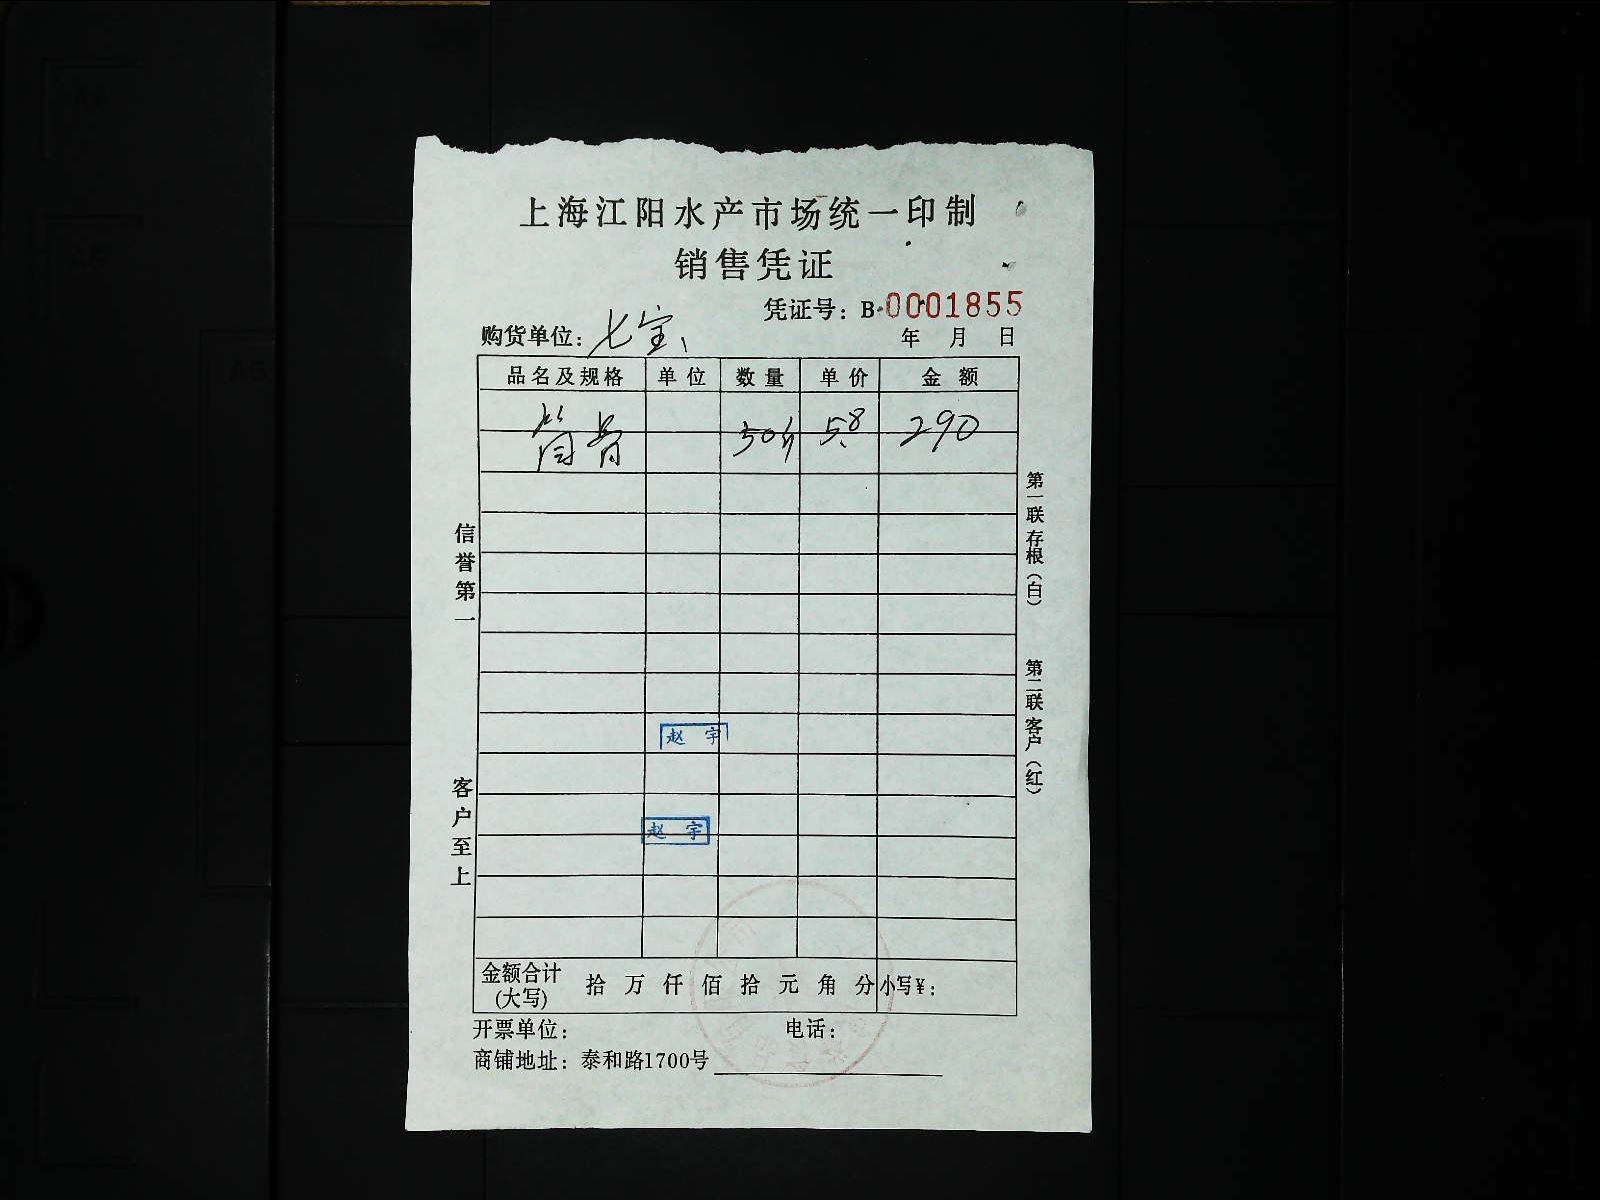 上海江阳水产市场统一印制
销售凭证
凭证号：B·0001855
购货单位：七宝、
年 月 日
品名及规格 单位 数量 单价 金额
筒骨 50斤 5.8 290
信誉第一
客户至上
第一联存根（白）
第二联客户（红）
赵宇
赵宇
金额合计(大写) 拾 万 仟 佰 拾 元 角 分 小写¥：
开票单位： 电话：
商铺地址：泰和路1700号